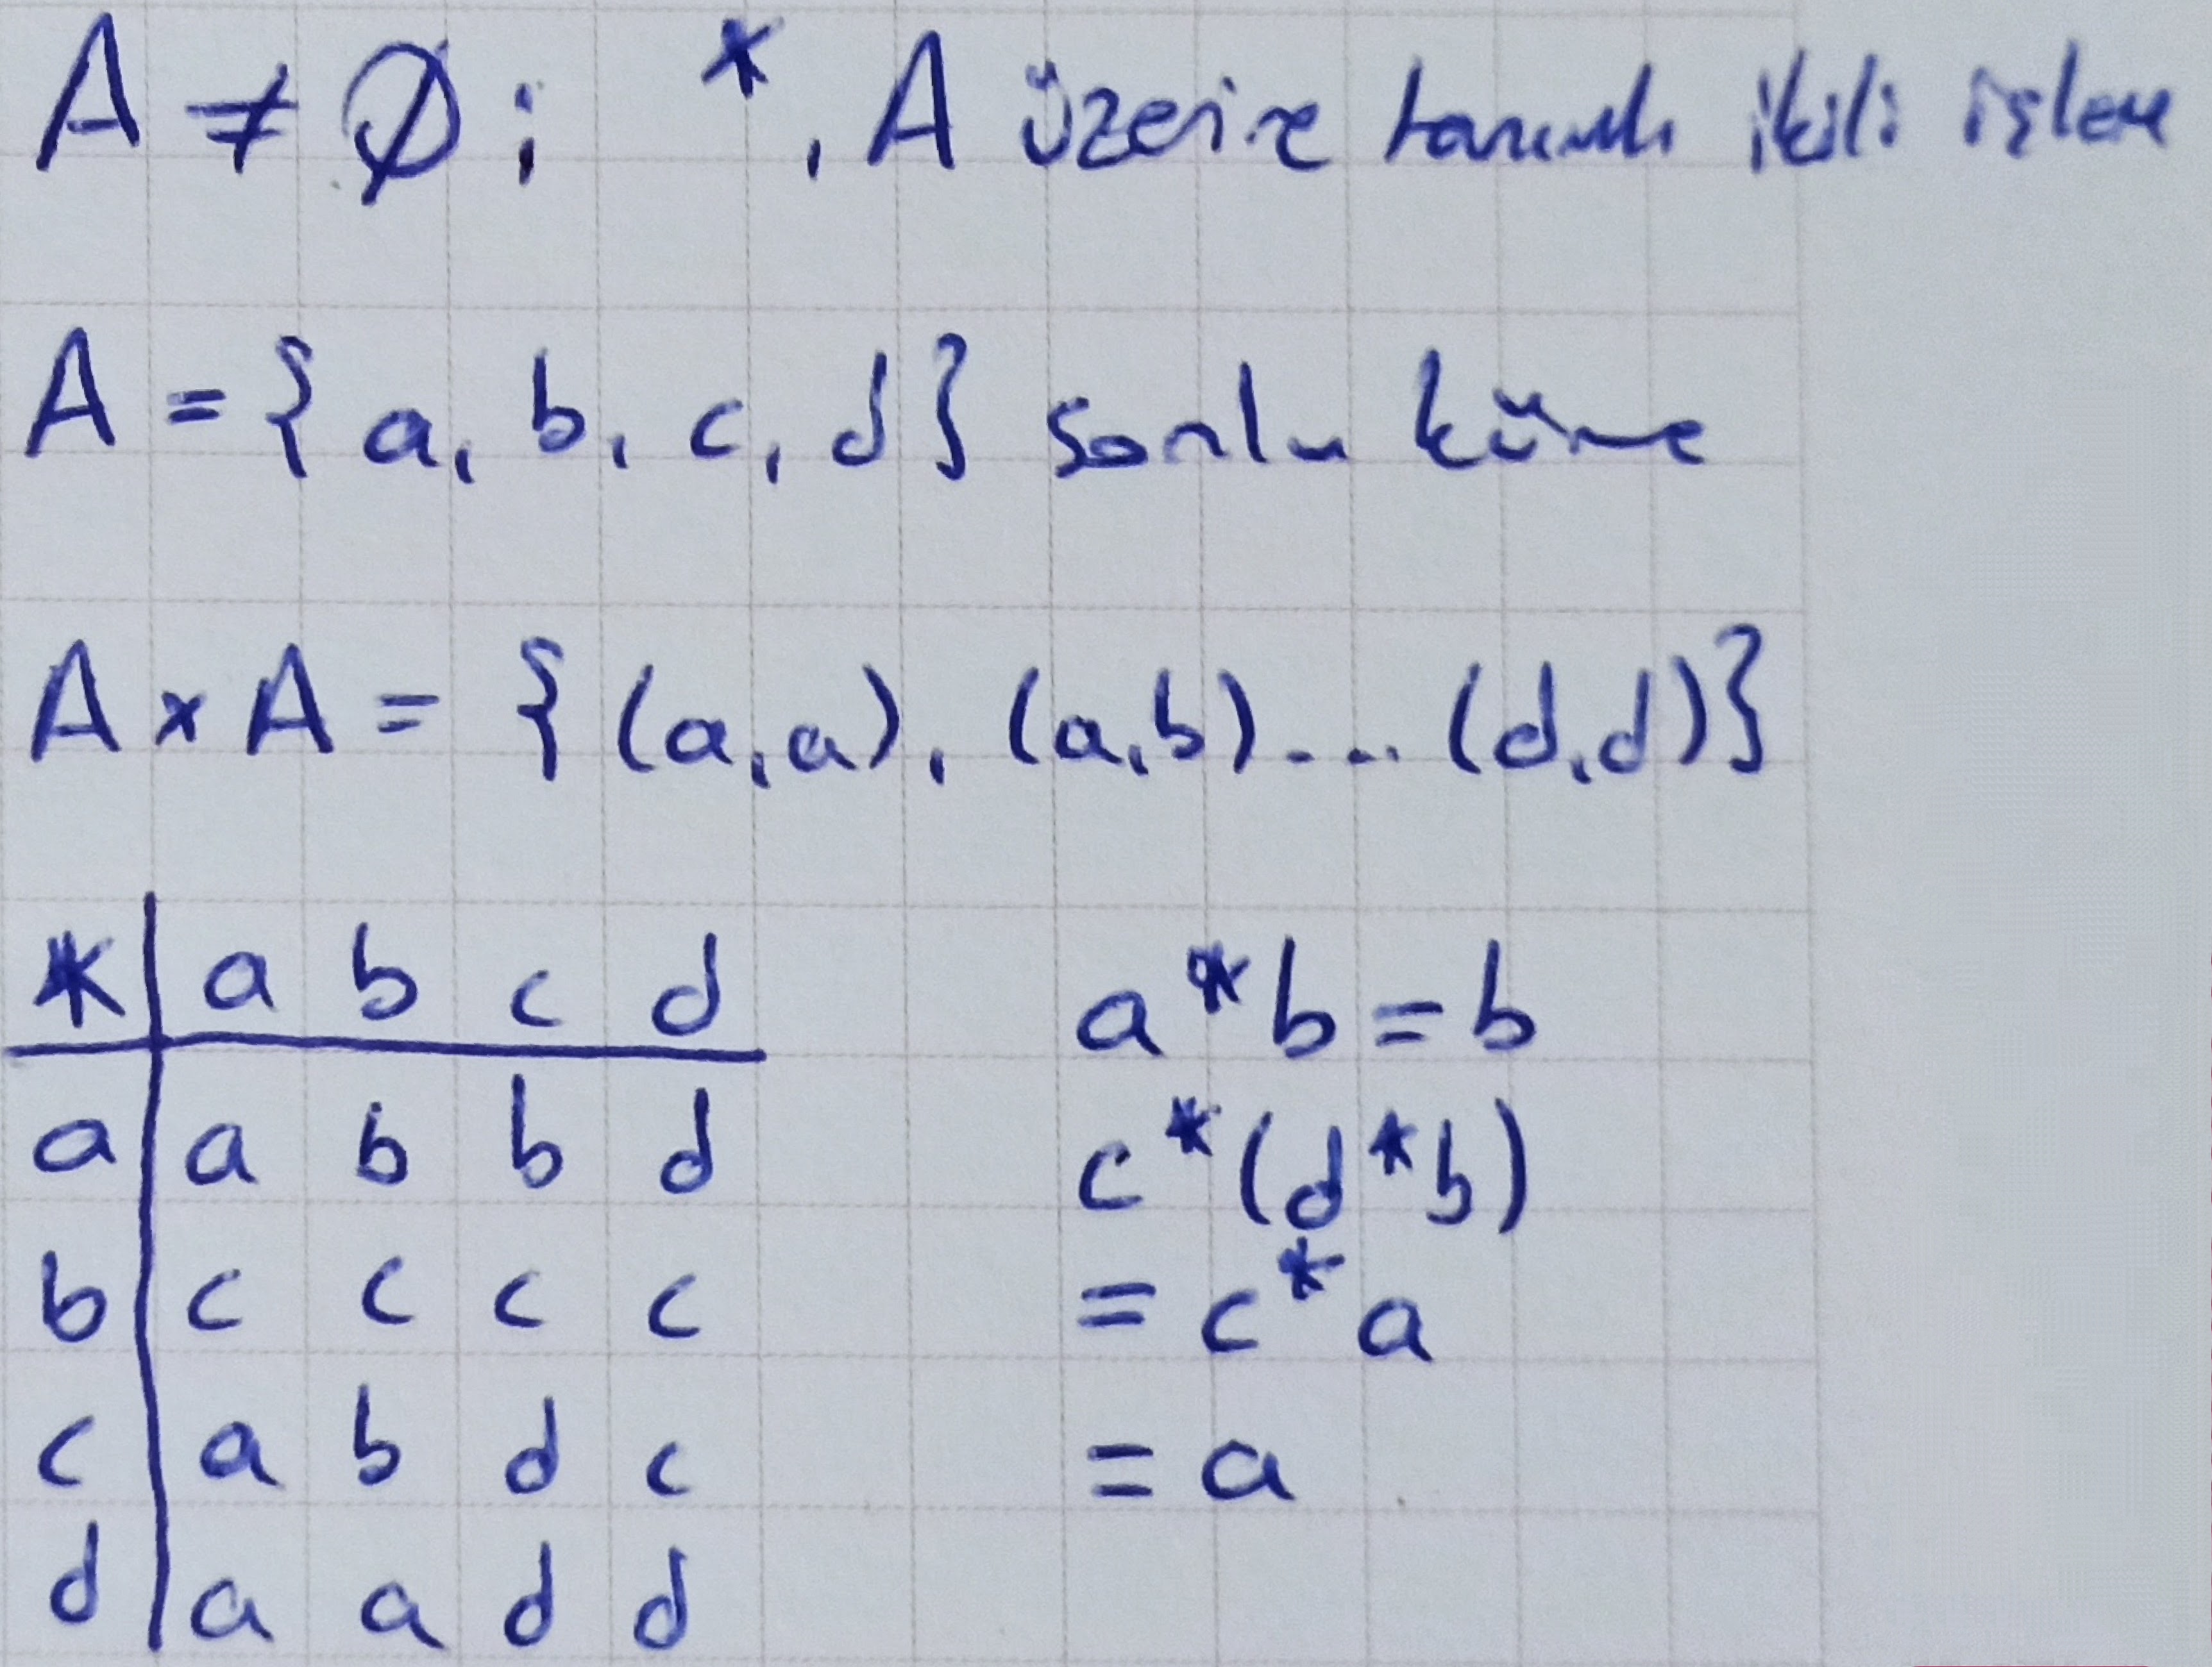 A ≠ ∅ ; * , A üzerine tanımlı ikili işlem
A = { a, b, c, d } sonlu küme
A × A = { (a,a), (a,b) .... (d,d) }
* | a b c d
a | a b b d
b | c c c c
c | a b d c
d | a a d d
a * b = b
c * (d * b)
= c * a
= a